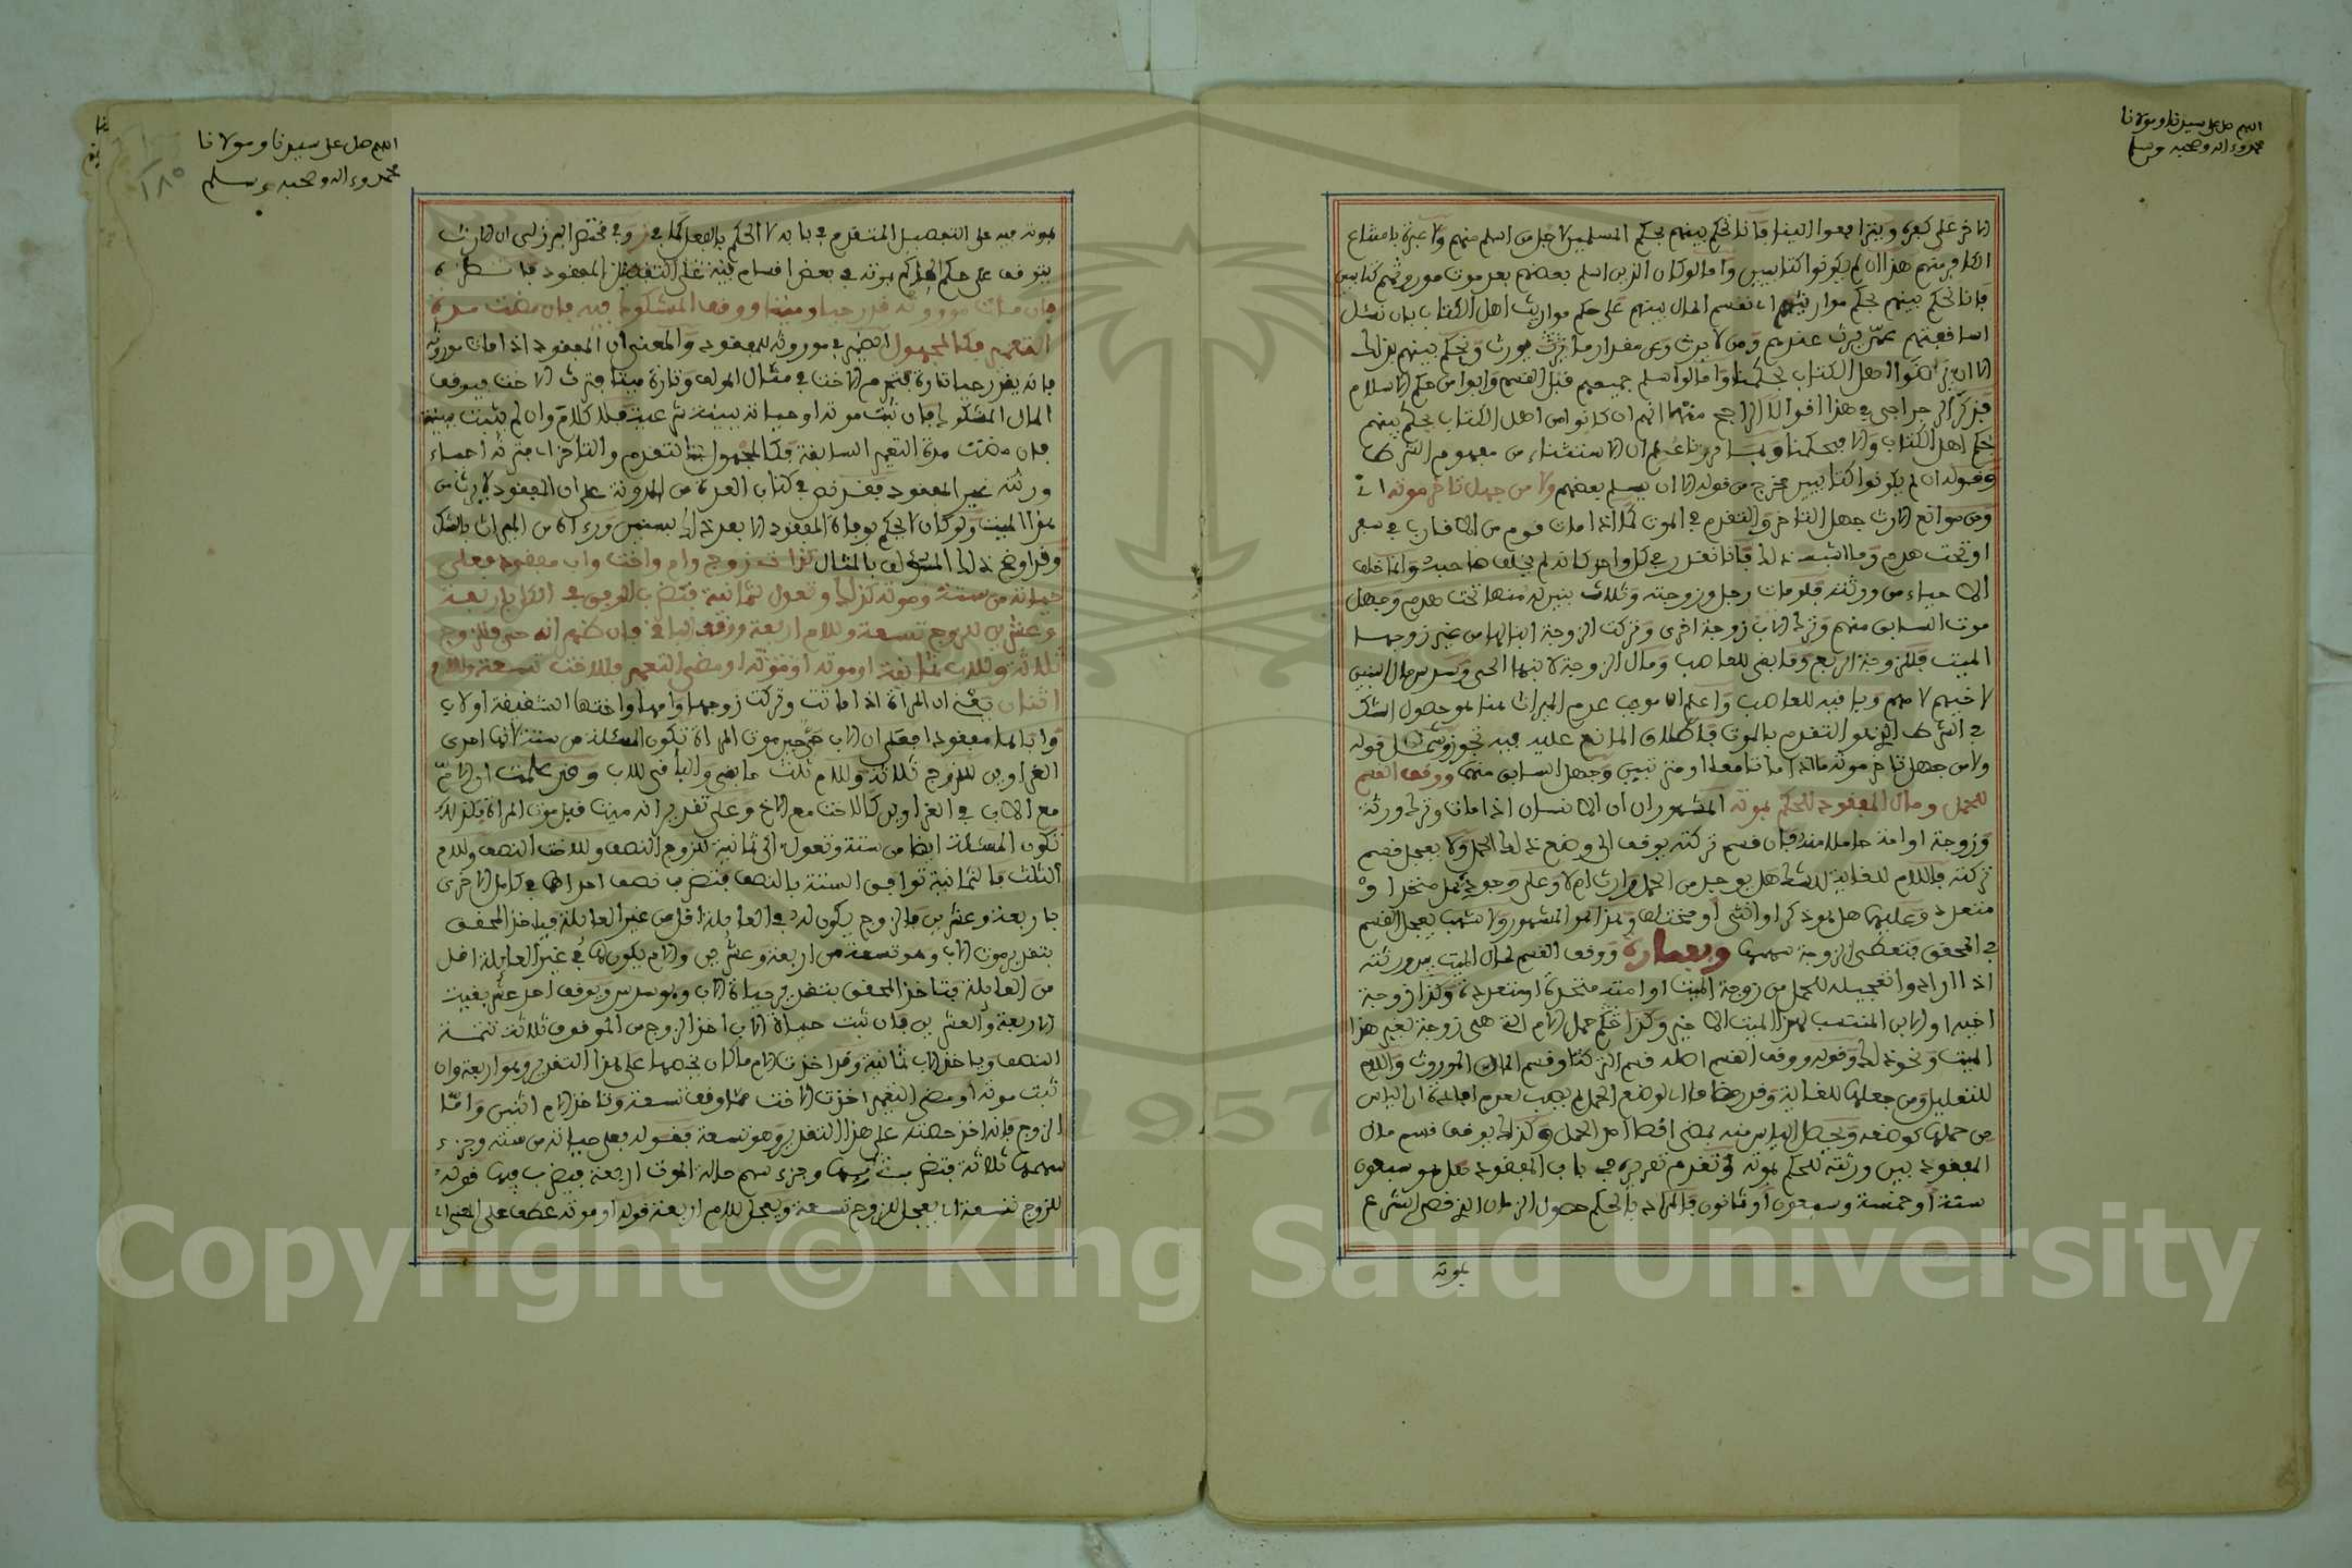 اللهم صل على سيدنا ومولانا
محمد وءاله وصحبه وسلم
الاخر على كفره ويترافعوا الينا فانا نحكم بينهم بحكم المسلمين لاجل من اسلم منهم ولا عبرة بامتناع
الكافر منهم هذا ان لم يكونوا كتابيين واما لو كان الذين اسلم بعضهم بعد موت مورثهم كتابيين
فانا نحكم بينهم بحكم مواريثهم اي نقسم المال بينهم على حكم مواريث اهل الكتاب بان نسئل
اساقفتهم عمن يرث عندهم ومن لا يرث وعن مقدار ما يرث ويورث ونحكم بينهم بذلك
الا ان يرضوا اهل الكتاب بحكمنا واما لو اسلم جميعهم قبل القسم وابوا من حكم الاسلام
فذكر ابن حاجب في هذا اقوالا الراجح منها انهم ان كانوا من اهل الكتاب يحكم بينهم
بحكم اهل الكتاب والا فبحكمنا وبما قررنا علم ان الاستثناء من مفهوم الشرط
وقوله ان لم يكونوا كتابيين مخرج من قوله الا ان يسلم بعضهم ولا من جهل تاخر موته اي
ومن موانع الارث جهل التاخر والتقدم في الموت كما اذا مات قوم من الاقارب في سفر
او تحت هدم وما اشبه ذلك فانا نقدر في كل واحد كانه لم يخلف صاحبه وانما خلف
الاحياء من ورثته فلو مات رجل وزوجته وثلاث بنين له منها تحت هدم وجهل
موت السابق منهم وترك الاب زوجة اخرى وتركت الزوجة ابنا لها من غير زوجها
الميت فللزوجة الربع وما بقي للعاصب ومال الزوجة لابنها الحي وسدس مال البنين
لاخيهم لامهم وباقيه للعاصب واعلم ان موجب عدم الميراث هنا هو حصول الشك
في الشرط الذي هو التقدم بالموت فاطلاق المانع عليه فيه تجوز وشمل قوله
ولا من جهل تاخر موته ما اذا ماتا معا او مترتبين وجهل السابق منهما ووقف القسم
للحمل ومال المفقود للحكم بموته المشهور ان الانسان اذا مات وترك ورثة
وزوجة او امة حاملا منه فان قسم تركته يوقف الى وضع ذلك الحمل ولا يعجل قسم
تركته فاللام للغاية للشك هل يوجد من الحمل وارث ام لا وعلى وجوده هل متحد او
متعدد وعليهما هل هو ذكر او انثى او مختلف وهذا هو المشهور ولاشهب يعجل القسم
في المحقق فتعطى الزوجة سهمها وبعبارة ووقف القسم لمال الميت بين ورثته
اذا ارادوا تعجيله للحمل من زوجة الميت او امته متحدة او متعددة وكذا زوجة
اخيه او الابن المنتسب لهذا الميت الاخير وكذا حكم حمل الام التي هي زوجة لغير هذا
الميت ونحو ذلك وقوله ووقف القسم اصله قسم التركة او قسم المال الموروث واللام
للتعليل ومن جعلها للغاية وقدر مضافا اي لوضع الحمل لم يصب لعدم افادة ان الياس
من حملها كوضعه ويحصل الياس منه بمضي اقصى امد الحمل وكذلك يوقف قسم مال
المفقود بين ورثته للحكم بموته وتقدم تقريره في باب المفقود هل هو سبعون
سنة او خمسة وسبعون او ثمانون فالمراد بالحكم حصول الزمان الذي قضى الشرع
بموته
اللهم صل على سيدنا ومولانا
محمد وءاله وصحبه وسلم
١٨٥
بموته فيه على التفصيل المتقدم في بابه لا الحكم بالفعل كما في ز وفي مختصر البرزلي ان الارث
يتوقف على حكم الحاكم بموته في بعض اقسام فيئة على التفصيل المفقود فانظره
فان مات مورثه قدر حيا وميتا ووقف المشكوك فيه فان مضت مدة
التعمير فكالمجهول الضمير في موروثه للمفقود والمعنى ان المفقود اذا مات مورثه
فانه يقدر حيا تارة فتحرم الاخت في مثال المولف وتارة ميتا فترث الاخت فيوقف
المال المشكوك فان ثبت موته او حياته ببينة شرعية فلا كلام وان لم تثبت بينة
فان مضت مدة التعمير السابقة فكالمجهول التقدم والتاخر اي فترثه احياء
ورثته غير المفقود فقد نص في كتاب العدة من المدونة على ان المفقود لا يرث من
هذا الميت ولو كان الحكم بوفاة المفقود الا بعد ذلك بسنين ورءاه من الميراث بالشك
وقد اوضح ذلك المؤلف بالمثال فذات زوج وام واخت واب مفقود فعلى
حياته من ستة وموته كذلك وتعول لثمانية فتضرب الوفق في الكل باربعة
وعشرين للزوج تسعة وللام اربعة ووقف الباقي فان ظهر انه حي فللزوج
ثلاثة وللاب ثمانية او موته او مضي التعمير فللاخت تسعة وللام
اثنان يعني ان المراة اذا ماتت وتركت زوجها وامها واختها الشقيقة او لاب
وابا لها مفقودا فعلى ان الاب حي حين موت المراة تكون المسئلة من ستة لانها احدى
الغراوين للزوج ثلاثة وللام ثلث ما بقي والباقي للاب وقد علمت ان الام
مع الاب في الغراوين كالاخت مع الاخ وعلى تقدير انه ميت قبل موت المراة فكذلك
تكون المسئلة ايضا من ستة وتعول الى ثمانية للزوج النصف وللاخت النصف وللام
الثلث فالثمانية توافق الستة بالنصف فتضرب نصف احداهما في كامل الاخرى
باربعة وعشرين فالزوج يكون له في العايلة اقل من غير العايلة فياخذ المحقق
بتقدير موت الاب وهو تسعة من اربعة وعشرين والام يكون لها في غير العايلة اقل
من العايلة فتاخذ المحقق بتقدير حياة الاب وهو سدس ويوقف احد عشر بقيت
الاربعة والعشرين فان ثبت حياة الاب اخذ الزوج من الموقوف ثلاثة تتمة
النصف وياخذ الاب ثمانية وقد اخذت الام ما كان يخصها على هذا التقدير وهو اربعة وان
ثبت موته او مضي التعمير اخذت الاخت مما وقف تسعة وتاخذ الام اثنين واما
الزوج فانه اخذ حصته على هذا التقدير وهو تسعة فقوله فعلى حياته من ستة وجزء
سهمها ثلاثة فتضرب فيها وجزء سهم حالة الموت اربعة فيضرب فيها قوله
للزوج تسعة اي يعجل للزوج تسعة ويعجل للام اربعة قوله او موته عطف على المعنى اي